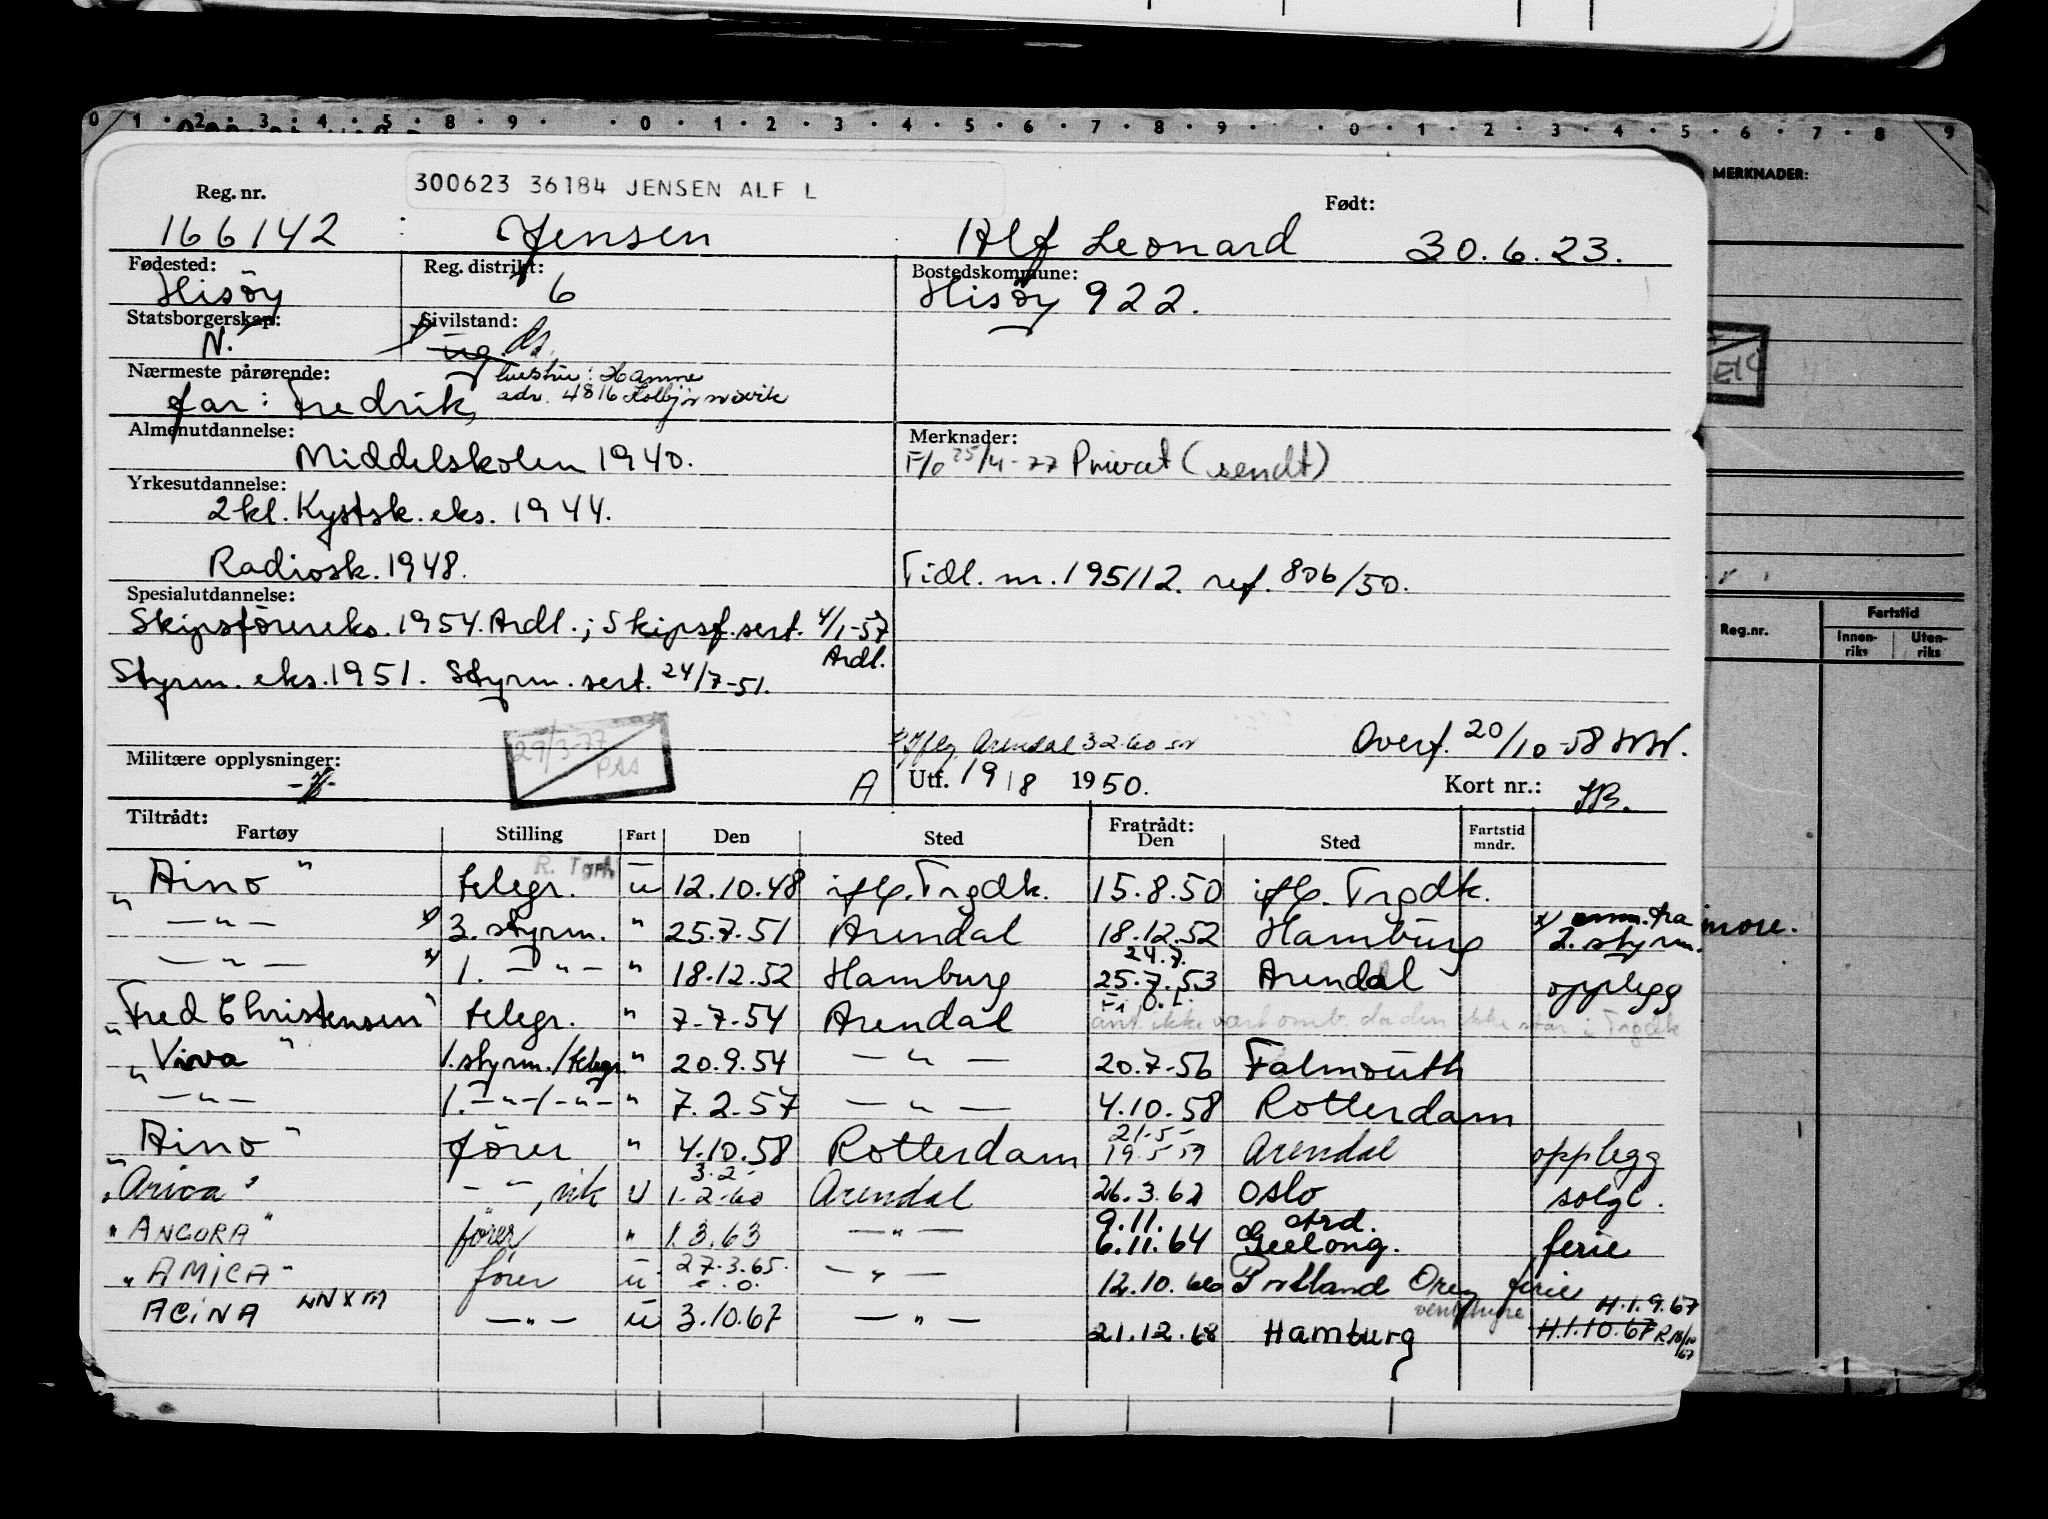 0 1 2 3 4 5 8 9 0 1 2 3 4 5 6 7 8 9 0 1 2 3 4 5 6 7 8 9
MERKNADER:
300623 36184 JENSEN ALF L
Reg. nr. Født:
166142 Jensen Alf Leonard 30.6.23.
Fødested: Reg. distrikt: Bostedskommune:
Hisöy 6 Hisöy 922.
Statsborgerskap: Sivilstand:
N. ug.
Nærmeste pårørende: hustru: Hanne
far: Fredrik, adr. 4816 Kolbjørnsvik
Almenutdannelse: Merknader:
Middelskolen 1940. F/o 25/4-77 Privat (sendt)
Yrkesutdannelse:
2 kl. Kystsk. eks. 1944.
Radiosk. 1948. Tidl. nr. 195112. ref. 806/50.
Spesialutdannelse:
Skipsförereks. 1954. Ardl.; Skipsf. sert. 4/1-57
Ardl.
Styrm. eks. 1951. Styrm. sert. 24/7-51.
29/3-77 Iflg. Arendal 3 2.60 Overf. 20/10-58
Militære opplysninger: A Utf. 19/8 1950. Kort nr.:
Tiltrådt: Fratrådt:
Fartøy Stilling Fart Den Sted Den Sted Fartstid mndr.
Reg.nr. Fartstid
Innen-riks Uten-riks
"Aino" telegr. ü 12.10.48 ifl. Trgdk. 15.8.50 ifl. Trgdk.
— " — x) 3. styrm. " 25.7.51 Arendal 18.12.52 Hamburg x) fra
2. styrm.
— " — x) 1. — " — " 18.12.52 Hamburg 24.7. 25.7.53 Arendal opplegg
"Fred Christensen" telegr. " 7.7.54 Arendal ant. ikke vært omb. da den ikke var i Trgdk
"Viva" 1. styrm./telegr. " 20.9.54 — " — 20.7.56 Falmouth
— " — 1. — " — / — " — " 7.2.57 — " — 4.10.58 Rotterdam
"Aino" förer " 4.10.58 Rotterdam 21.5- 19.5.59 Arendal opplegg
"Arica" — " —, vik U 3.2- 1.2.60 Arendal 26.3.62 Oslo solgt.
"ANCORA" förer " 1.3.63 — " — 9.11. 6.11.64 Ard. Geelong. ferie
"AMICA" förer ü 27.3.65. — " — 12.10.66 Portland Oreg ferie
ACINA LNXM — " — ü 3.10.67 — " — 21.12.68 Hamburg H.1.9.67
H.1.10.67 R 18/10 67